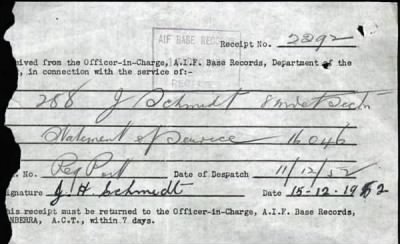 AIF BASE RECO
Receipt No. 2292
ceived from the Officer-in-Charge, A.I.F. Base Records, Department of the
, in connection with the service of:-
268 J Schmidt
Statement of Service 16046
. No. Reg Post Date of Despatch 11/12/52
ignature J. H. Schmidt Date 15-12-1952
his receipt must be returned to the Officer-in-Charge, A.I.F. Base Records,
NBERRA, A.C.T., within 7 days.